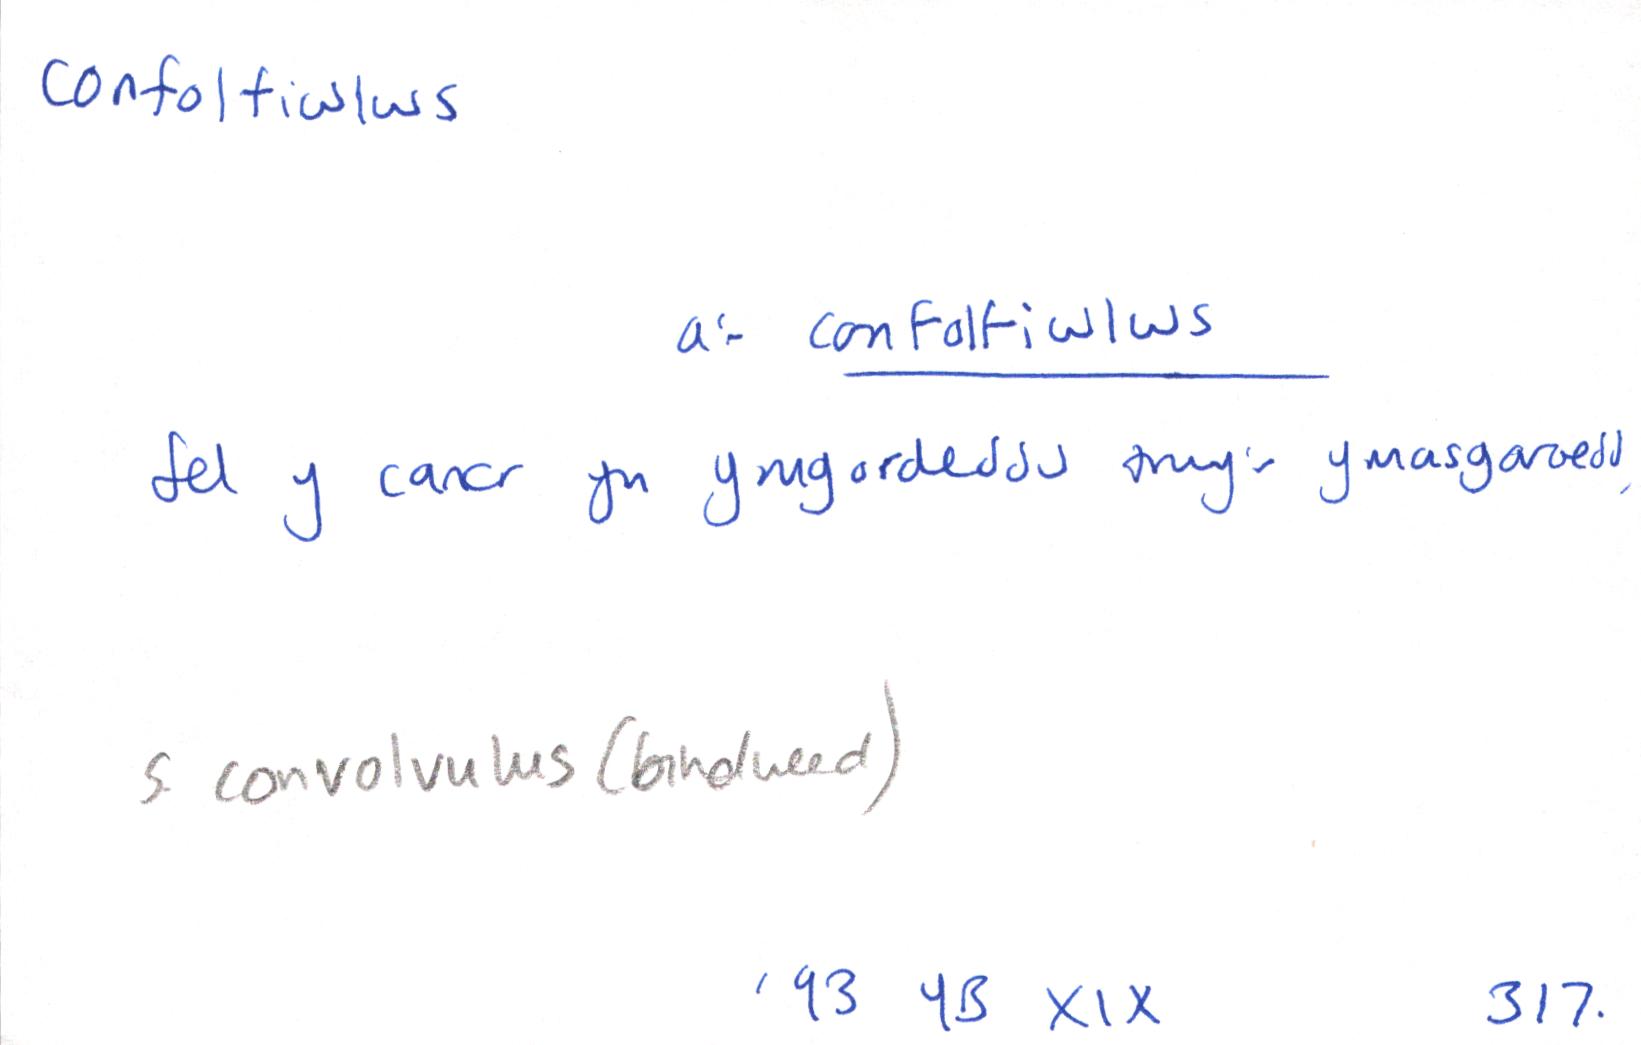 confolfiwlws
a'r confolfiwlws
fel y cancr yn ymgordeddu trwy'r ymasgaroedd,
S. convolvulus (bindweed)
'93 YB XIX 317.